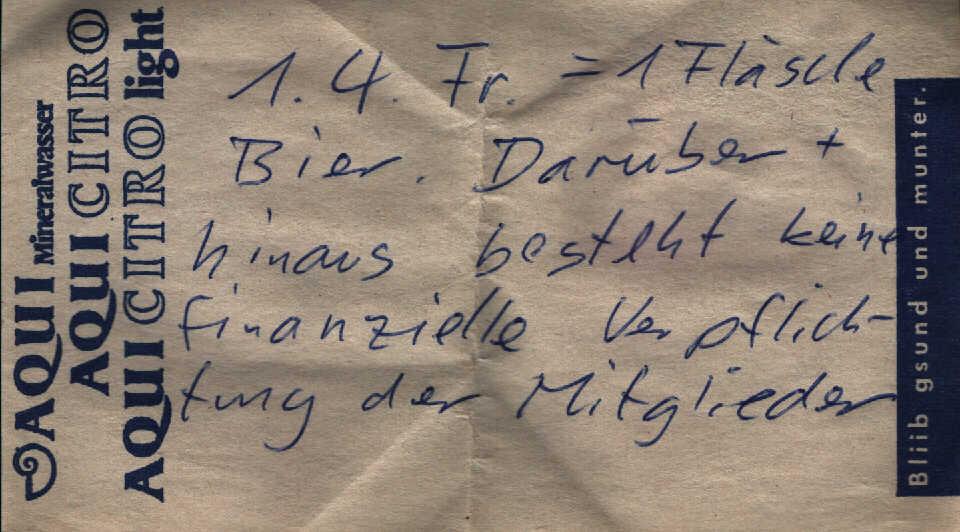 AQUI Mineralwasser
AQUI CITRO
AQUI CITRO light
1. 4. Fr. = 1 Flasche
Bier. Darüber +
hinaus besteht keine
finanzielle Verpflich-
tung der Mitglieder
Bliib gsund und munter.